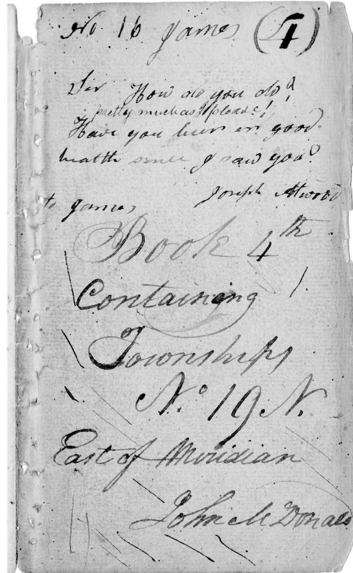 No 16 James (4)
Sir How do you do?
pretty much as I please!
Have you been in good
health since I saw you?
to James Joseph Atwood
Book 4th
Containing
Townships
No. 19 N.
East of Meridian
John McDonald